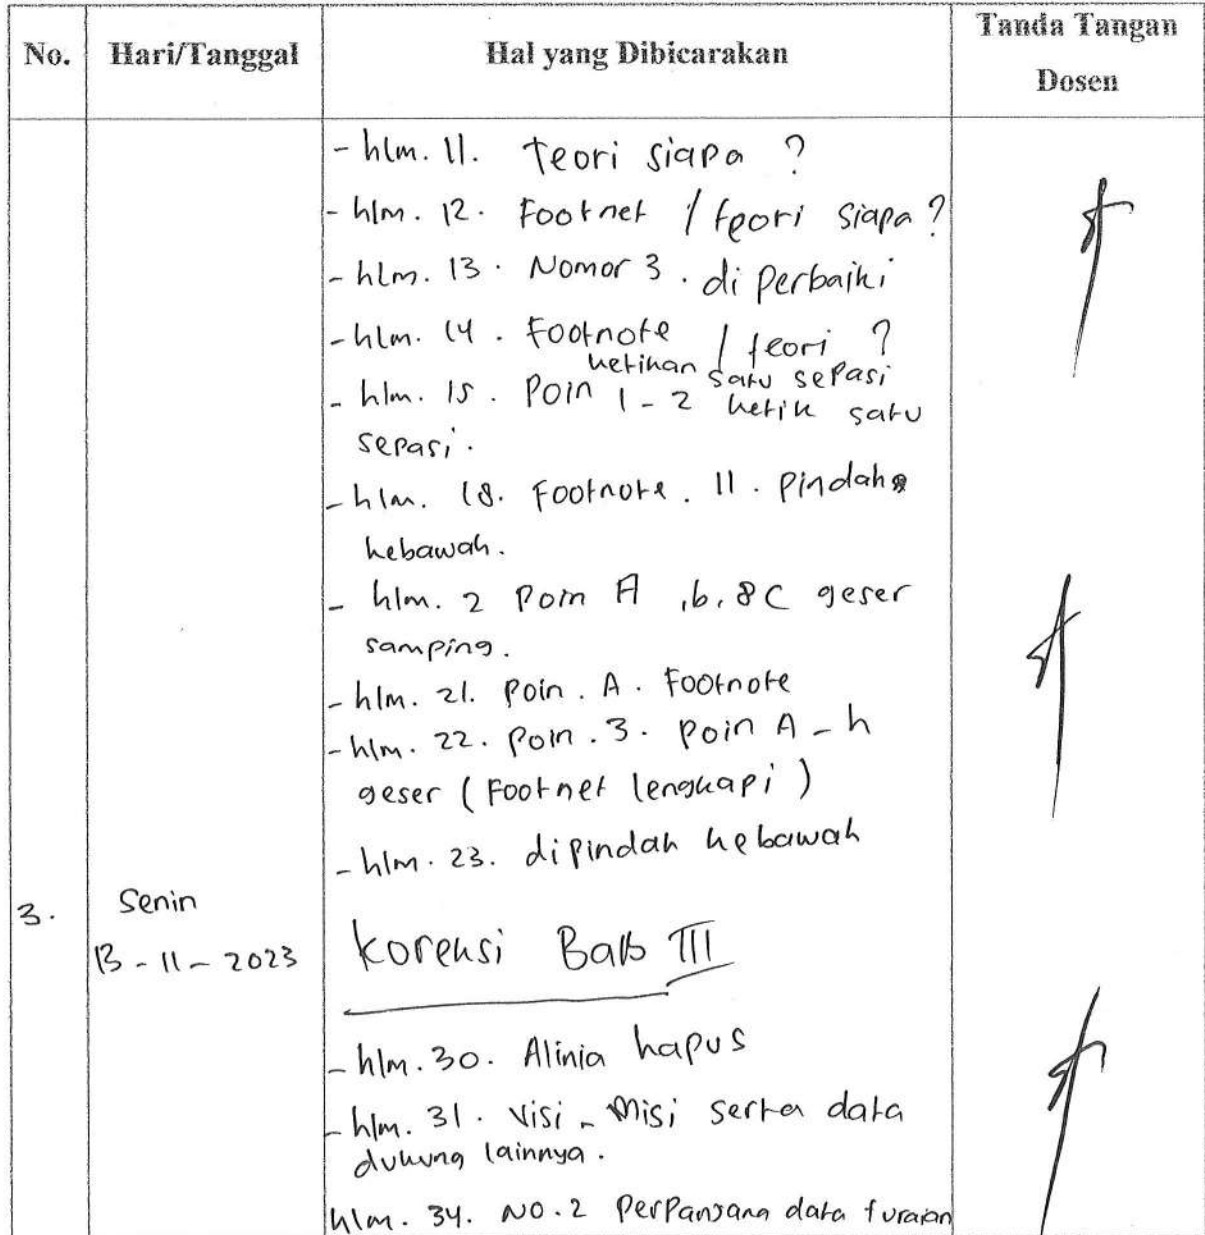 No. Hari/Tanggal Hal yang Dibicarakan Tanda Tangan Dosen
- hlm. 11. teori siapa ?
- hlm. 12. Footnet / teori siapa ?
- hlm. 13. Nomor 3. di perbaiki
- hlm. 14. Footnote / teori ?
ketikan satu sepasi
- hlm. 15. Poin 1 - 2 ketik satu
sepasi.
- hlm. 18. Footnote. 11. pindah
kebawah.
- hlm. 2 Poin A , b, & C geser
samping.
- hlm. 21. Poin. A. Footnote
- hlm. 22. Poin. 3. Poin A - h
geser (Footnet lengkapi)
- hlm. 23. dipindah kebawah
3. Senin
13 - 11 - 2023
Koreksi Bab III
- hlm. 30. Alinia hapus
- hlm. 31. Visi - Misi serta data
dukung lainnya.
hlm. 34. NO. 2 data